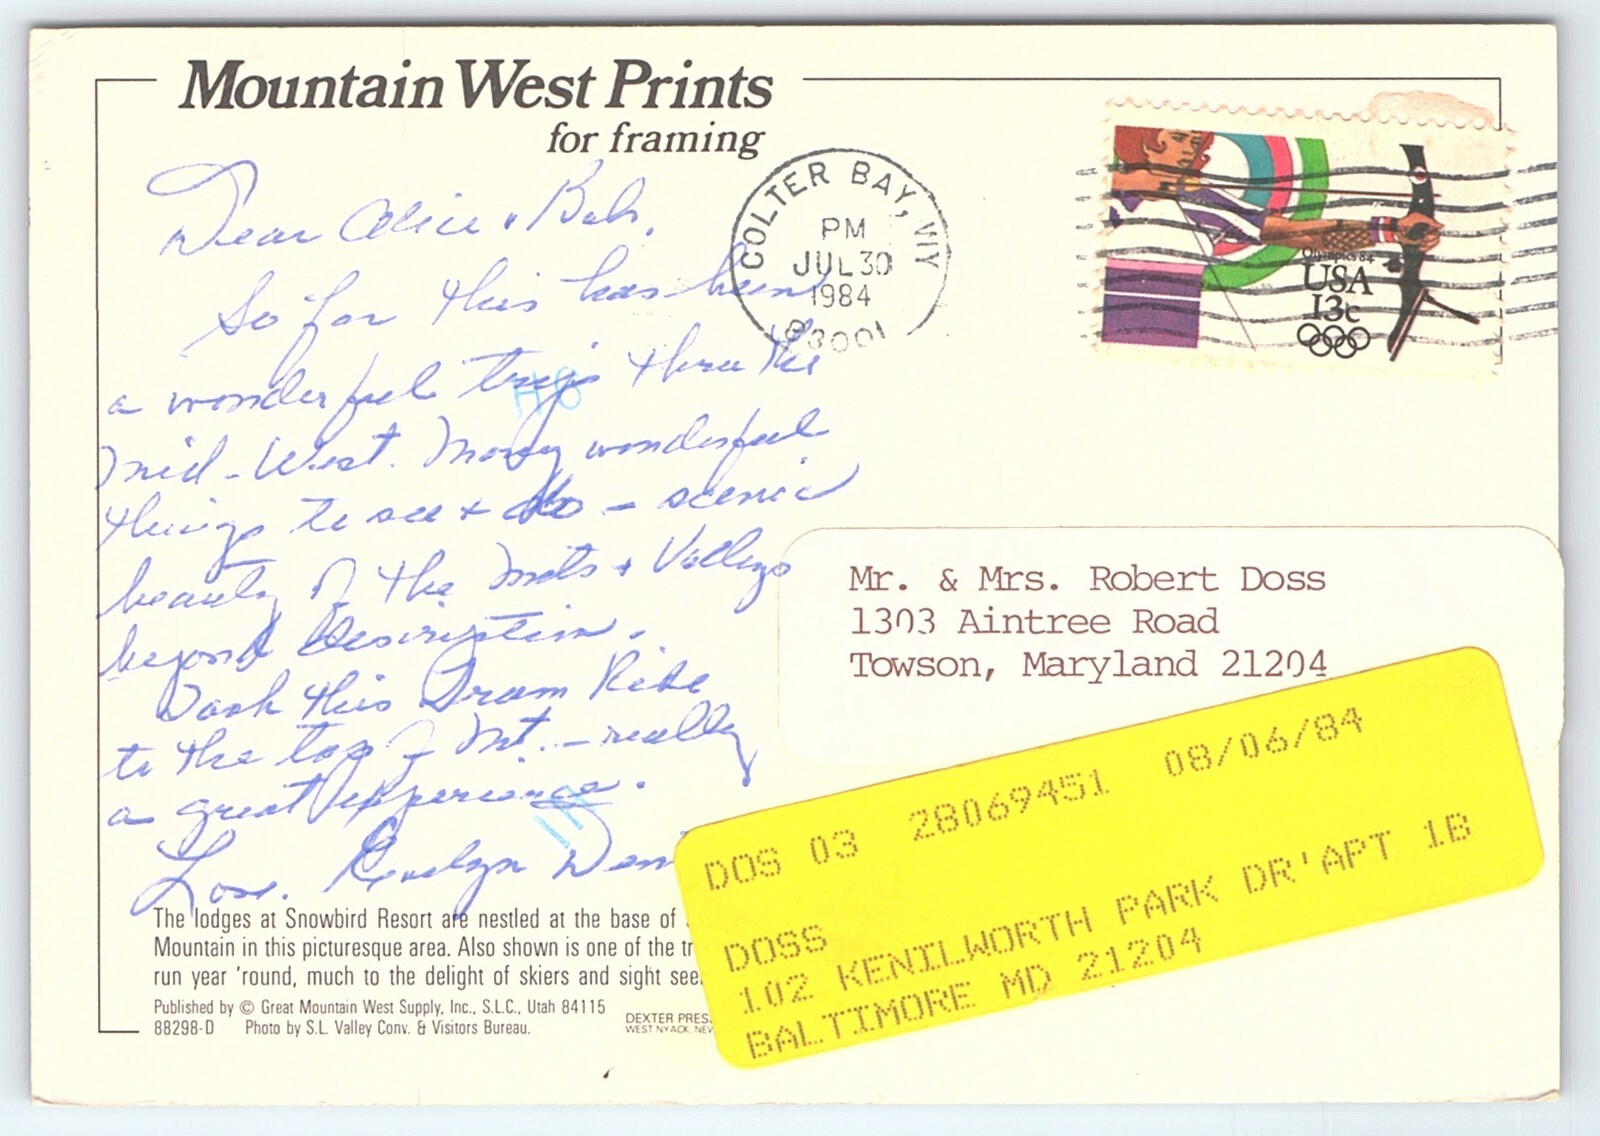 Mountain West Prints
for framing
COLTER BAY, WY
PM
JUL 30
1984
83001
Olympics 84
USA
13c
Dear Alice & Bob,
So far this has been
a wonderful trip thru the
Mid-West. Many wonderful
things to see & do - scenic
beauty of the Mts & Valleys
beyond description.
Took this Tram Ride
to the top of Mt. - really
a great experience.
Love. Evelyn
Mr. & Mrs. Robert Doss
1303 Aintree Road
Towson, Maryland 21204
DOS 03 28069451 08/06/84
DOSS
102 KENILWORTH PARK DR'APT 1B
BALTIMORE MD 21204
The lodges at Snowbird Resort are nestled at the base of
Mountain in this picturesque area. Also shown is one of the tr
run year 'round, much to the delight of skiers and sight see
Published by © Great Mountain West Supply, Inc., S.L.C., Utah 84115
88298-D Photo by S.L. Valley Conv. & Visitors Bureau.
DEXTER PRES
WEST NYACK, NEW